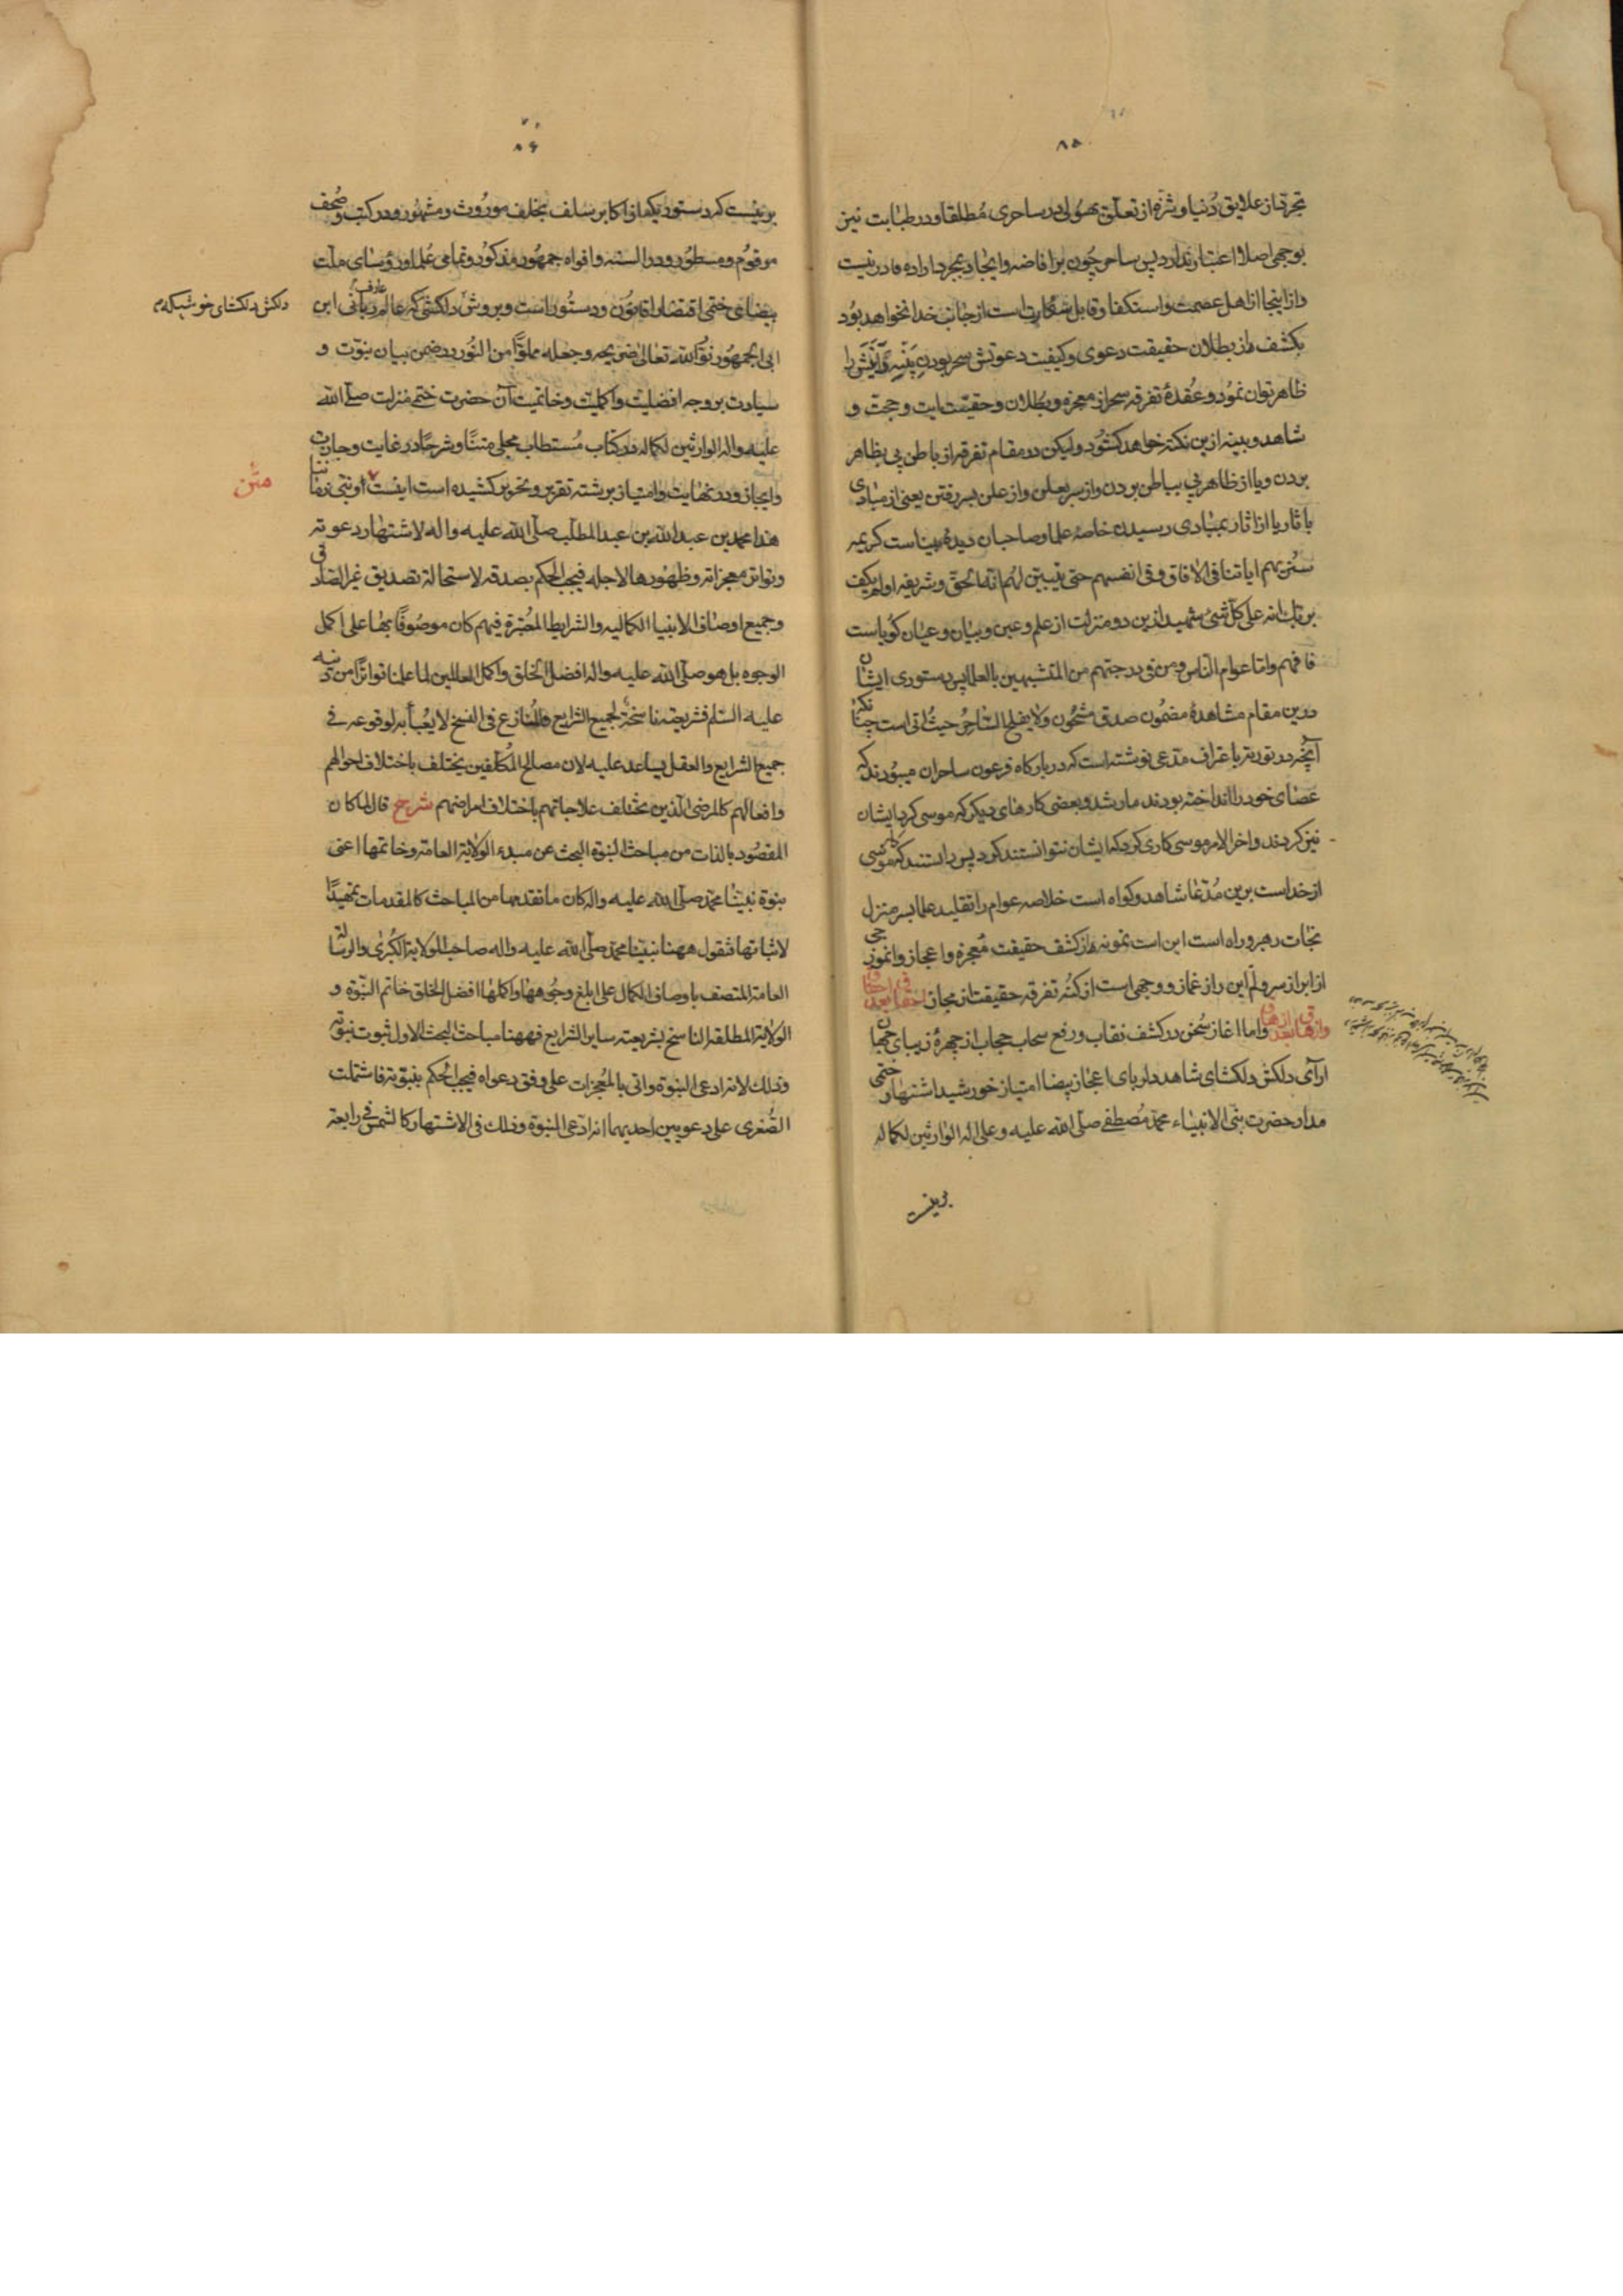 ۸۵
تجرد از علایق دنیا و نثره از تعلق بهیولی در ساحری مطلقا و در طبابت نیز
بوجهی اصلا اعتبار ندارد پس ساحر چون بر افاضه و ایجاد بمجرد اراده قادر نیست
و از اینجا از اهل عصمت و استکفا و قابل است از جانب خدا نخواهد بود
بکشف راز بطلان حقیقت دعوی و کیفیت دعوتش سحر بودن را
ظاهر توان نمود و عقدهٔ تفرقه سحر از معجزه و بطلان و حقیقت ایت و حجت و
شاهد و بینه ازین نکته خواهد کشود ولیکن در مقام تفرقه از باطن پی بظاهر
بردن و یا از ظاهر پی بباطن بردن و از سر بعلن و از علن بسر رفتن یعنی از مبادی
باثار یا از اثار بمبادی رسیدن خاصهٔ علما و صاحبان دیدهٔ بیناست کریمه
سنریهم ایاتنا فی الافاق و فی انفسهم حتی یتبین لهم انه الحق و شریفه اولم یکف
بربک انه علی کل شئ شهید ازین دو منزلت از علم و عین و بیان و عیان کویاست
فافهم و اما عوام الناس و من فی درجتهم من المتشبهین بالعلما پس دستوری ایشان
درین مقام مشاهدهٔ مضمون صدق مشحون ولا یفلح الساحر حیث اتی است چنانکه
آنچه در توریة باعتراف مدعی نوشته است که در بارکاه فرعون ساحران میبودند که
عصای خود را انداخته بودند مار شد و بعضی کارهای دیکر که موسی کرد ایشان
نیز کردند و اخر الامر موسی کاری کرد که ایشان نتوانستند کرد پس دانستند که موسی
از خداست برین مدعا شاهد و کواه است خلاصه عوام را تقلید علما بسر منزل
نجات رهبر و راه است این است نمونهٔ از کشف حقیقت معجزه و اعجاز و انموزجی
از ابراز سر و لم این راز غماز و وجهی است از کنه تفرقه حقیقت از مجاز
و اما اغاز سخن در کشف نقاب و رفع سحاب حجاب از چهرهٔ زیبای جهان
ارآی دلکش دلکشای شاهد دلربای اعجاز بیضا امتیاز خورشید اشتهار ختمی
مدار حضرت نبی الانبیاء محمد مصطفی صلی الله علیه و علی اله الوارثین لکماله
برینست
۸۶
برینست که دستور یکه از اکابر سلف بخلف موروث و مشهور و در کتب و صحف
مرقوم و مسطور و در السنه و افواه جمهور مذکور و تمامی علما و رؤسای ملت
بیضای ختمی اقتضا را قانون و دستور است و بروش دلکشی که عالم عارف ربانی ابن
دلکش دلکشای خوشیکه
ابی الجمهور نور الله تعالی ضریحه و جعله مملوًا من النور در ضمن بیان نبوت و
سیادت بر وجه افضلیت و اکملیت و خاتمیت آن حضرت ختمی منزلت صلی الله
علیه واله الوارثین لکماله در کتاب مستطاب مجلی متنًا و شرحًا در غایت وجازت
و ایجاز و در نهایت و امتیاز برشته تقریر و تحریر کشیده است اینست و نبی زماننا
متن
هذا محمد بن عبد الله بن عبد المطلب صلی الله علیه واله لاشتهار دعوته
و تواتر معجزاته و ظهورها لاجله فیجب الحکم بصدقه لاستحالة تصدیق غیر الصادق
و جمیع اوصاف الانبیا الکمالیه و الشرایط المعتبرة فیهم کان موصوفًا بها علی اکمل
الوجوه بل هو صلی الله علیه واله افضل الخلق و اکمل العالمین لما علمنا تواترًا من دینه
علیه السلم فشریعته ناسخة لجمیع الشرایع و المنازع فی النسخ لا یعبأ به لوقوعه فی
جمیع الشرایع و العقل یساعد علیه لان مصالح المکلفین یختلف باختلاف احوالهم
و افعالهم کالمرضی الذین یختلف علاجاتهم باختلاف امراضهم شرح قال لما کان
المقصود بالذات من مباحث النبوة البحث عن مبدء الولایة العامة و خاتمها اعنی
نبوة نبینا محمد صلی الله علیه واله کان ما تقدمها من المباحث کالمقدمات تمهیدًا
لاثباتها فنقول ههنا نبینا محمد صلی الله علیه واله صاحب الولایة الکبری و الرسالة
العامة المتصف باوصاف الکمال علی ابلغ وجوهها و اکملها افضل الخلق خاتم النبوة و
الولایة المطلقة الناسخ بشریعته سایر الشرایع فههنا مباحث البحث الاول ثبوت نبوته
و ذلک لانه ادعی النبوة و اتی بالمعجزات علی وفق دعواه فیجب الحکم بنبوته فاشتملت
الصغری علی دعویین احدیهما انه ادعی النبوة و ذلک فی الاشتهار کالشمس فی رابعة